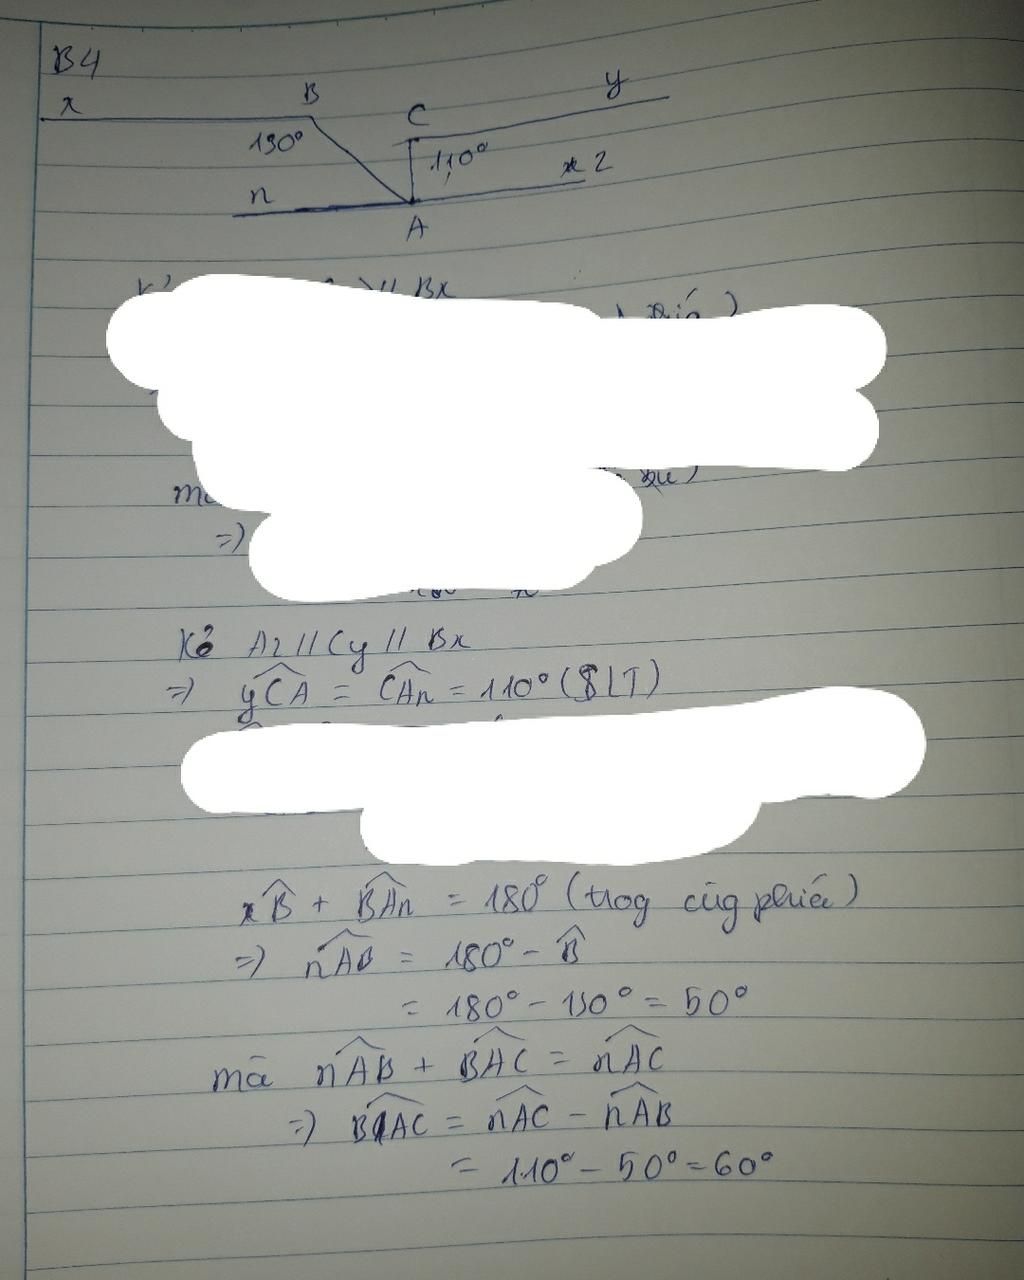 B4
x B C y
130° 110°
n z
A
Bx
=)
Kẻ Az // Cy // Bx
=) yCA = CAn = 110° (SLT)
xB + BAn = 180° (trog cùg phiá)
=) nAB = 180° - B
= 180° - 130° = 50°
mà nAB + BAC = nAC
=) BAC = nAC - nAB
= 110° - 50° = 60°